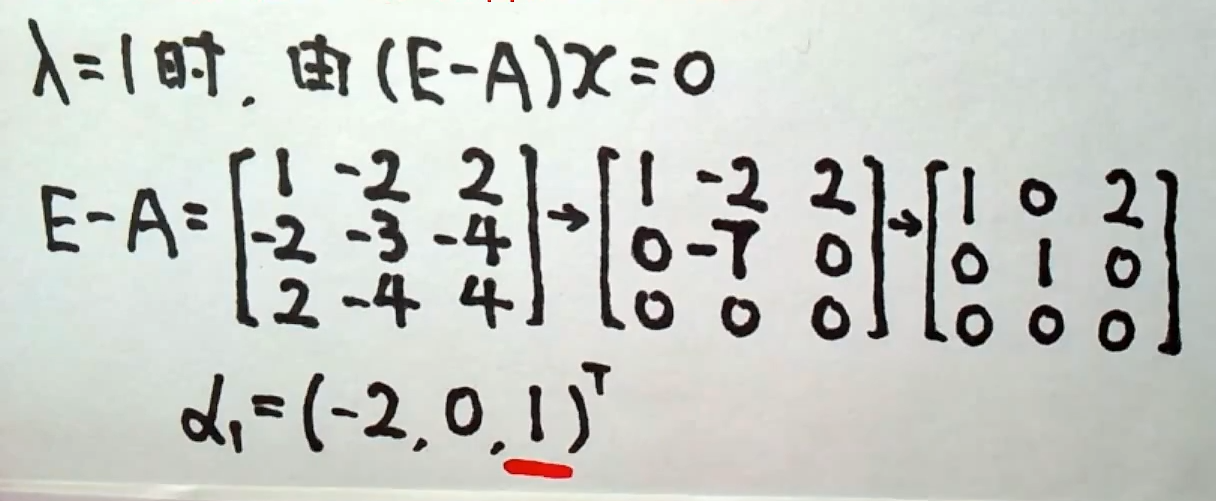 λ=1时. 由(E-A)x=0
E-A=[1 -2 2; -2 -3 -4; 2 -4 4]→[1 -2 2; 0 -7 0; 0 0 0]→[1 0 2; 0 1 0; 0 0 0]
α₁=(-2,0,1)ᵀ